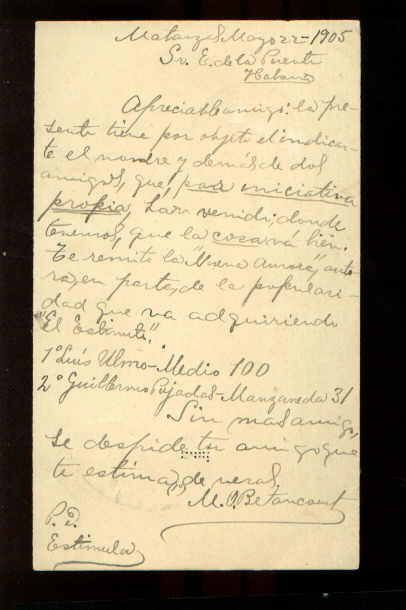 Matanzas Mayo 22-1905
Sr. E. de la Puente
Habana
Apreciable amigo: la pre-
sente tiene por objeto el indicar-
te el nombre y demás de dos
amigos, que, por iniciativa
propia, han venido; donde
tenemos, que la cosa vá bien.
Te remito la "Nueva Aurora", auto
ra, en parte, de la populari-
dad que va adquiriendo
"El Estímulo".
1º Luís Ulmo-Medio 100
2º Guillermo Pujadas-Manzaneda 31
Sin mas amigo,
se despide tu amigo que
te estima de veras,
M. O. Betancourt
P. D.
Estimula